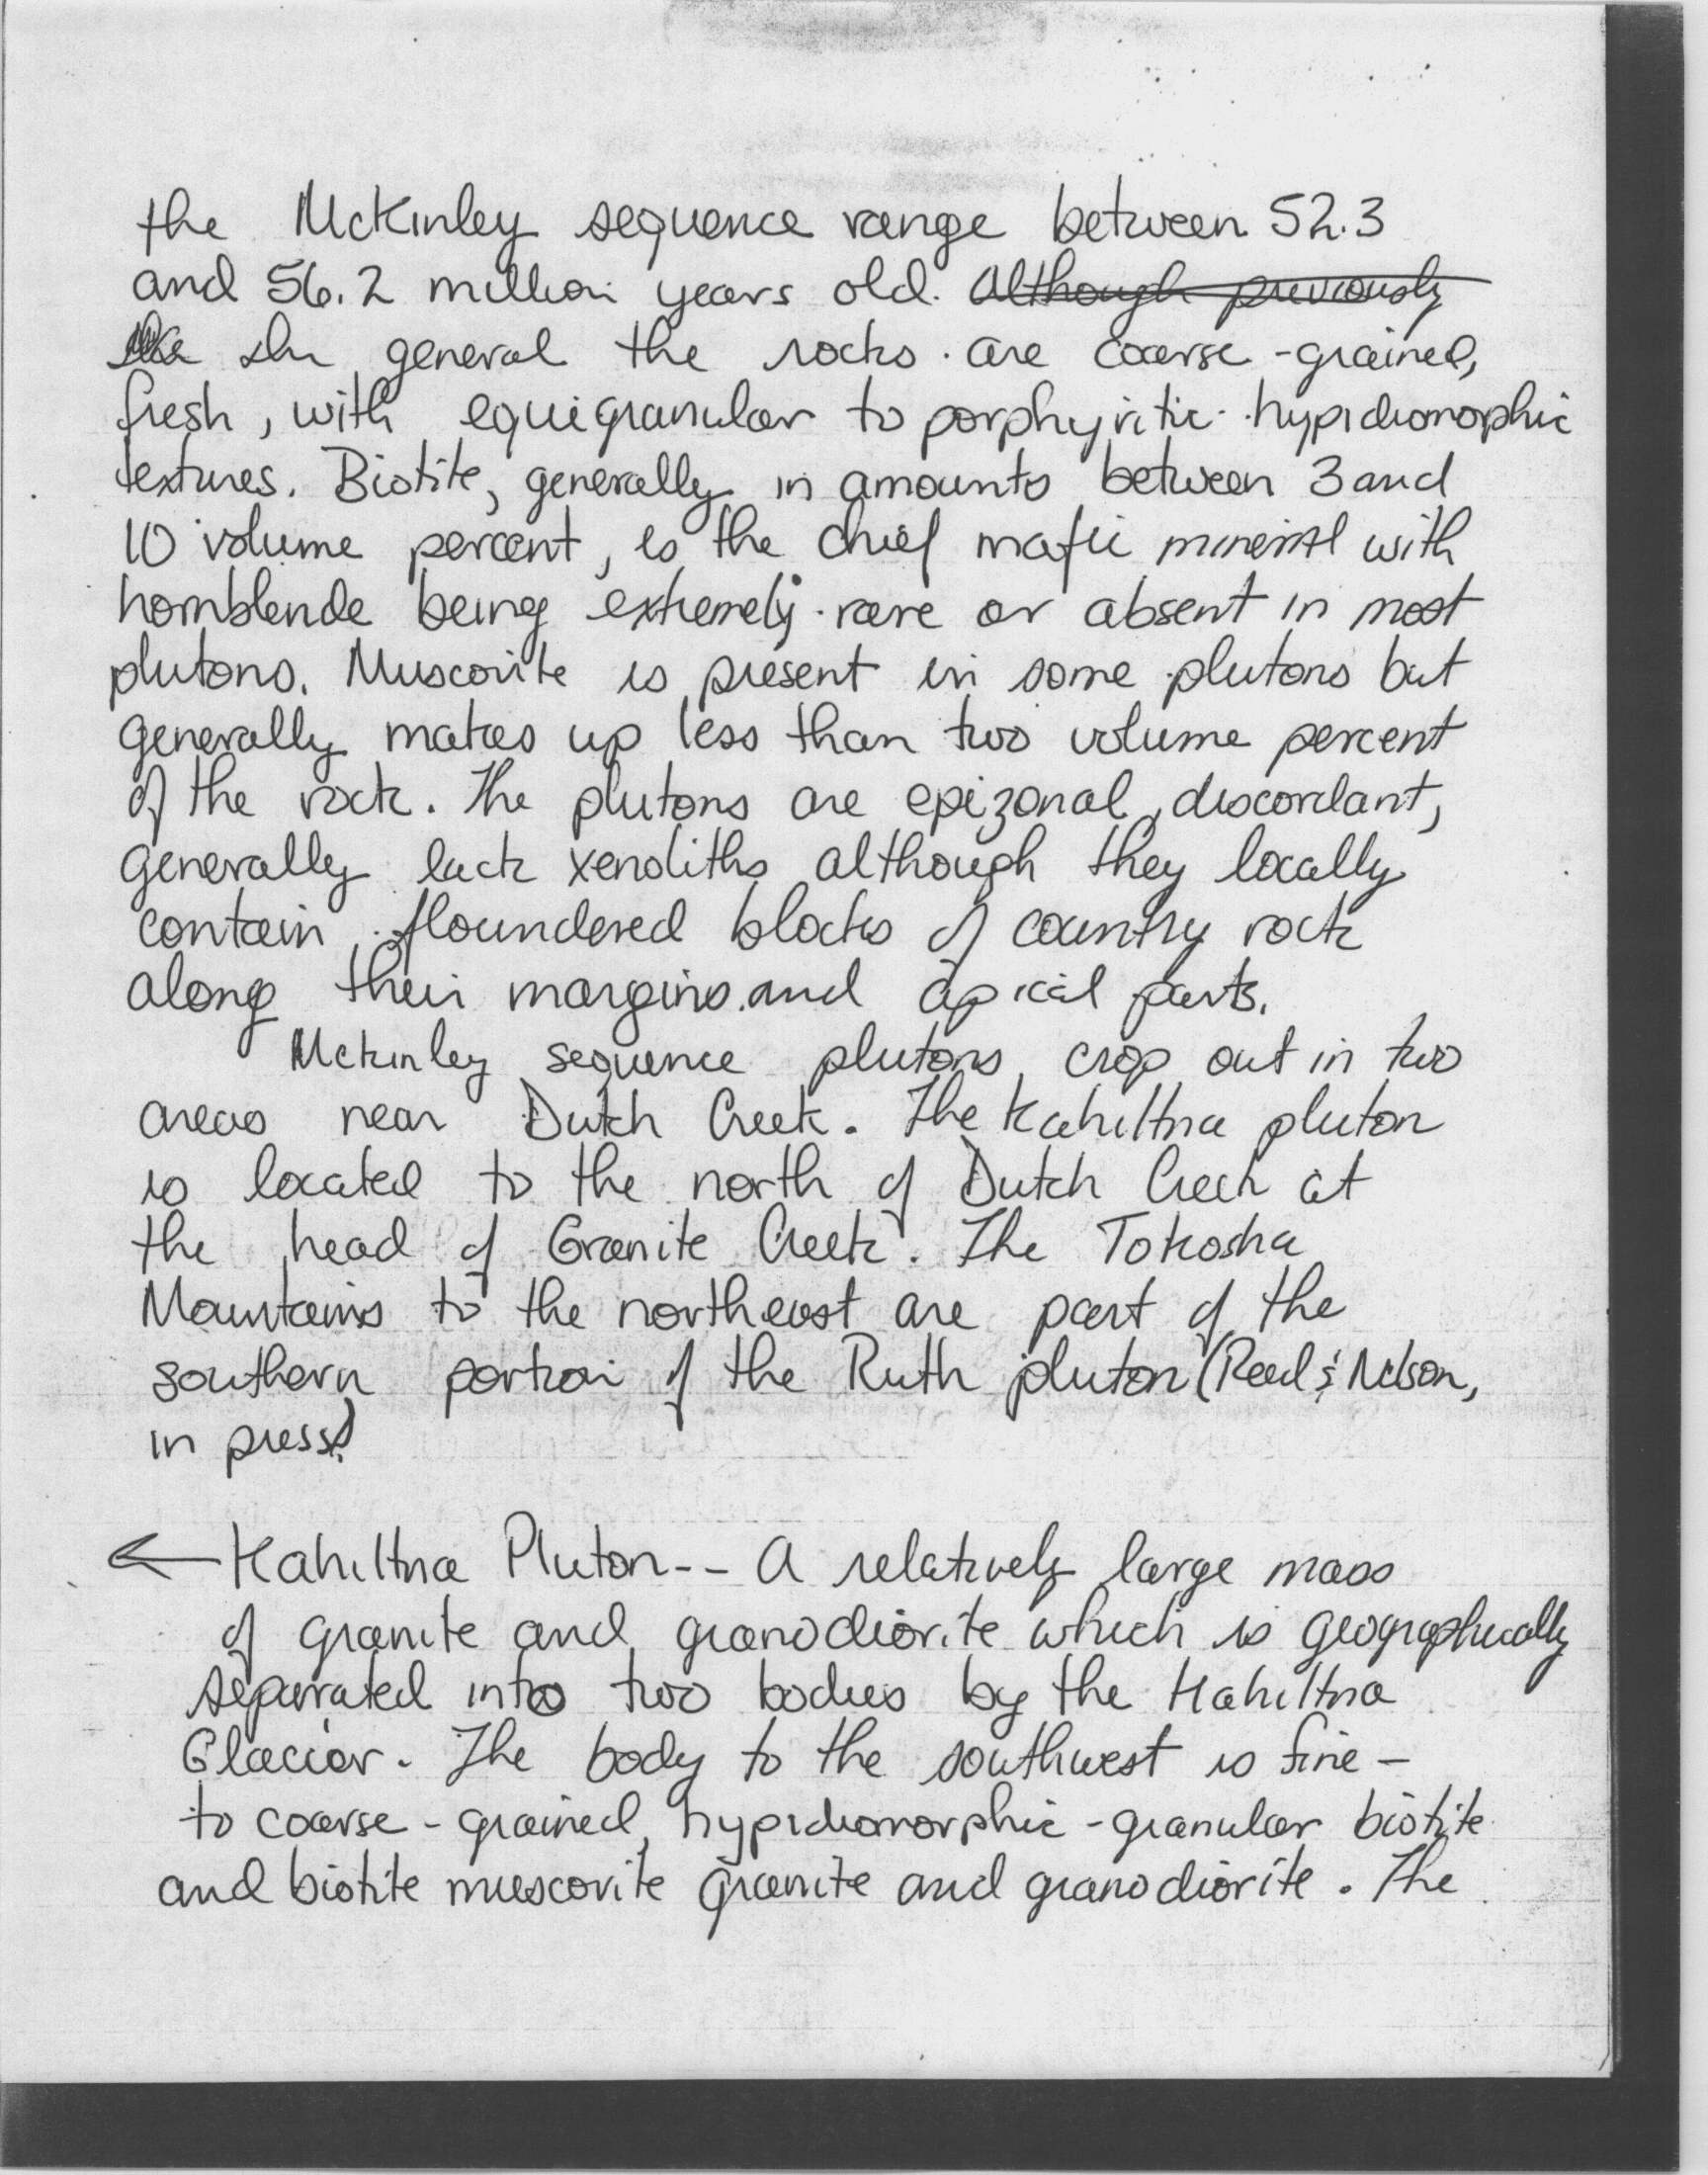 the McKinley sequence range between 52.3
and 56.2 million years old. Although previously
In general the rocks are coarse-grained,
fresh, with equigranular to porphyritic hypidiomorphic
textures. Biotite, generally in amounts between 3 and
10 volume percent, is the chief mafic mineral with
hornblende being extremely rare or absent in most
plutons. Muscovite is present in some plutons but
generally makes up less than two volume percent
of the rock. The plutons are epizonal, discordant,
generally lack xenoliths although they locally
contain floundered blocks of country rock
along their margins and apical parts.
McKinley sequence plutons crop out in two
areas near Dutch Creek. The Kahiltna pluton
is located to the north of Dutch Creek at
the head of Granite Creek. The Tokosha
Mountains to the northeast are part of the
southern portion of the Ruth pluton (Reed & Nelson,
in press).
← Kahiltna Pluton -- A relatively large mass
of granite and granodiorite which is geographically
separated into two bodies by the Kahiltna
Glacier. The body to the southwest is fine-
to coarse-grained, hypidiomorphic-granular biotite
and biotite muscovite granite and granodiorite. The